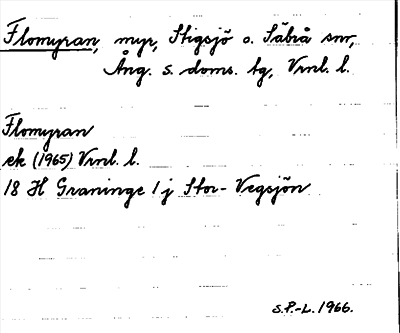 Flomyran, myr, Stigsjö o. Säbrå snr,
Ång. s. doms. tg, Vrnl. l.
Flomyran
ek (1965) Vrnl. l.
18 H Graninge 1 j Stor-Vegsjön
S.P.-L. 1966.